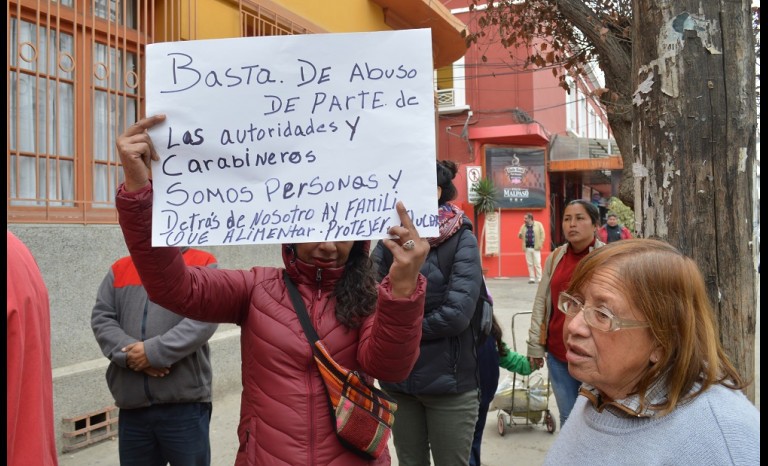 Basta. DE Abuso
DE PARTE. de
Las autoridades y
Carabineros
Somos Personas y
Detrás de Nosotro AY FAMILI
QUE ALIMENTAR. Proteger
MALPASO